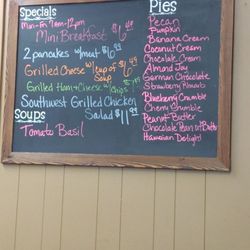 Specials
Mon-Fri 7am-12pm
Mini Breakfast $6.49
2 pancakes w/meat $6.99
Grilled Cheese w/cup of Soup $6.49
Grilled Ham & Cheese w/chips
Southwest Grilled Chicken Salad $11.99
Soups
Tomato Basil
Pies
Pecan
Pumpkin
Banana Cream
Coconut Cream
Chocolate Cream
Almond Joy
German Chocolate
Strawberry
Blueberry Crumble
Cherry Crumble
Peanut Butter
Chocolate Peanut Butter
Hawaiian Delight